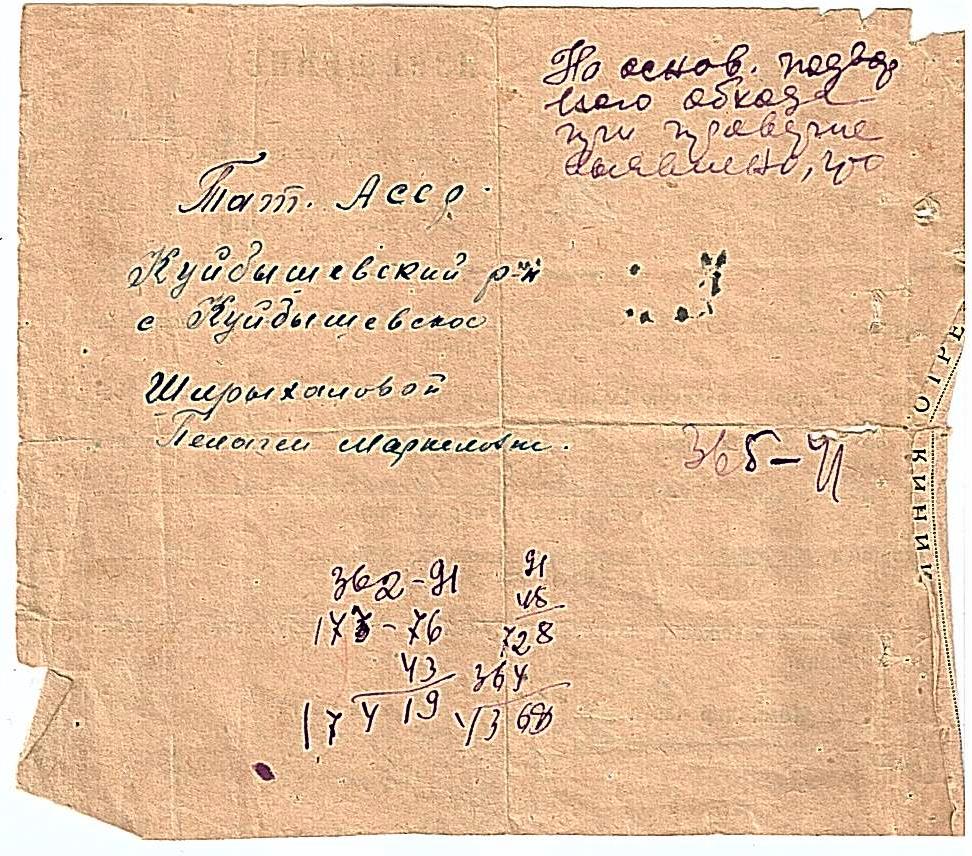 На основ. подвор
ного обхода
при проверке
выявлено, что
Тат. АССР
Куйбышевский р-н
с Куйбышевское
Ширыхаловой
Пелагеи Маркеловне.
365-91
362-91
173-76
43
17419
91
48
728
364
4368
ЛИНИЯ ОТРЕ